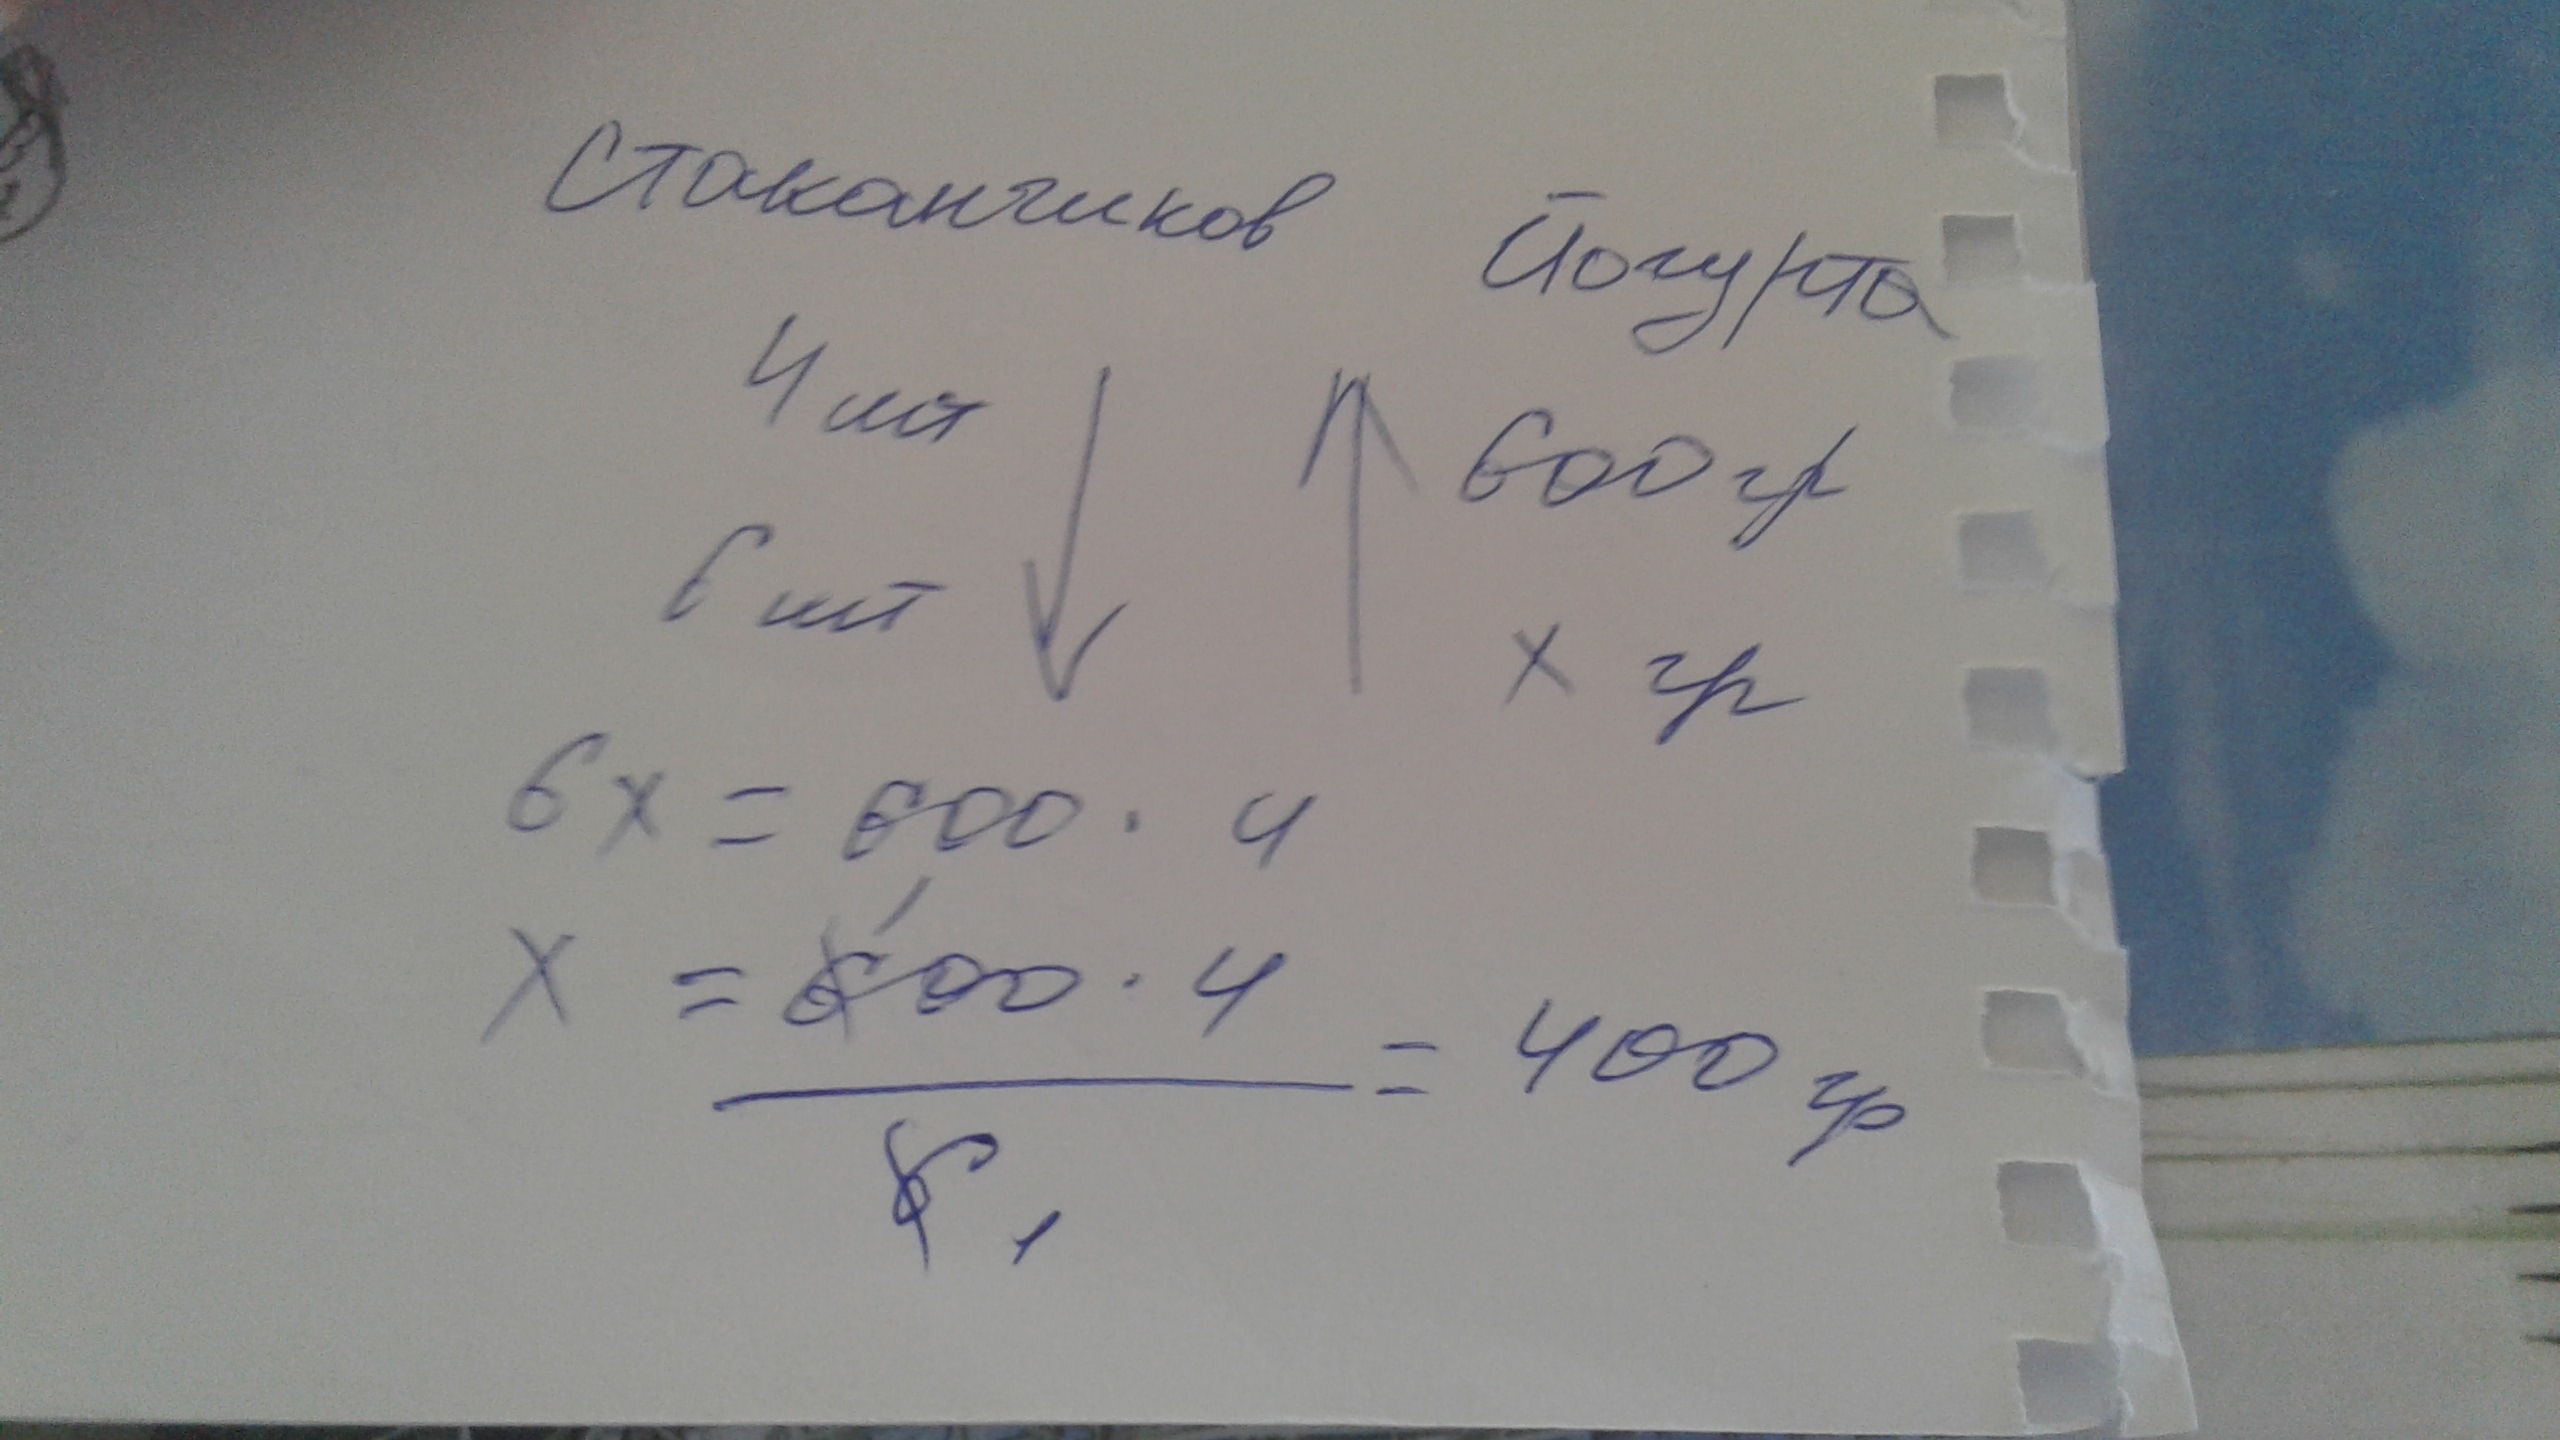 Стаканчиков Йогурта
4 шт 600 гр
6 шт х гр
6х = 600 · 4
х = 600 · 4 / 6 = 400 гр
1
1